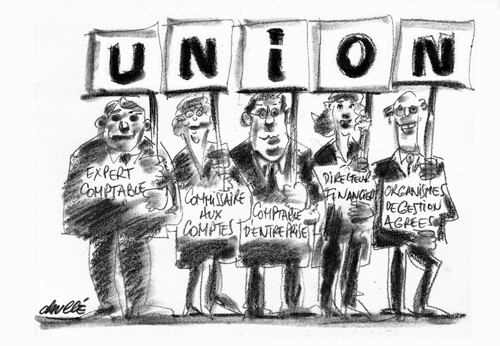 UNiON
EXPERT
COMPTABLE
COMMISSAIRE
AUX
COMPTES
COMPTABLE
D'ENTREPRISE
DIRECTEUR
FINANCIER
ORGANISMES
DE GESTION
AGREES